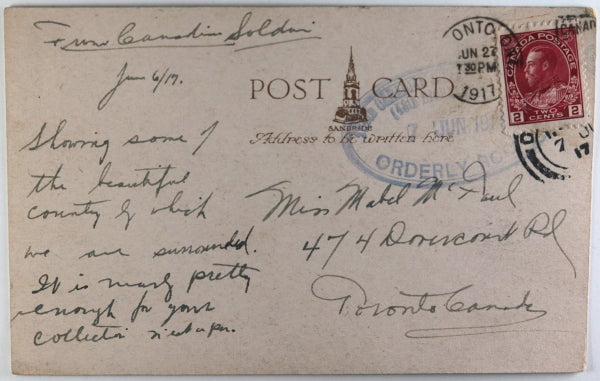 From Canadian Soldier
June 6/17.
Showing some of
the beautiful
country of which
we are surrounded.
It is nearly pretty
enough for your
collection
POST CARD
SANBRIDE
Address to be written here
Miss Mabel McFaul
474 Dovercourt Rd
Toronto Canada
ONTO
JUN 27
7 30 PM
1917
CANADA
7 JUN 19
ORDERLY RO
CANADA POSTAGE
2 2
TWO
CENTS
7 JU
17